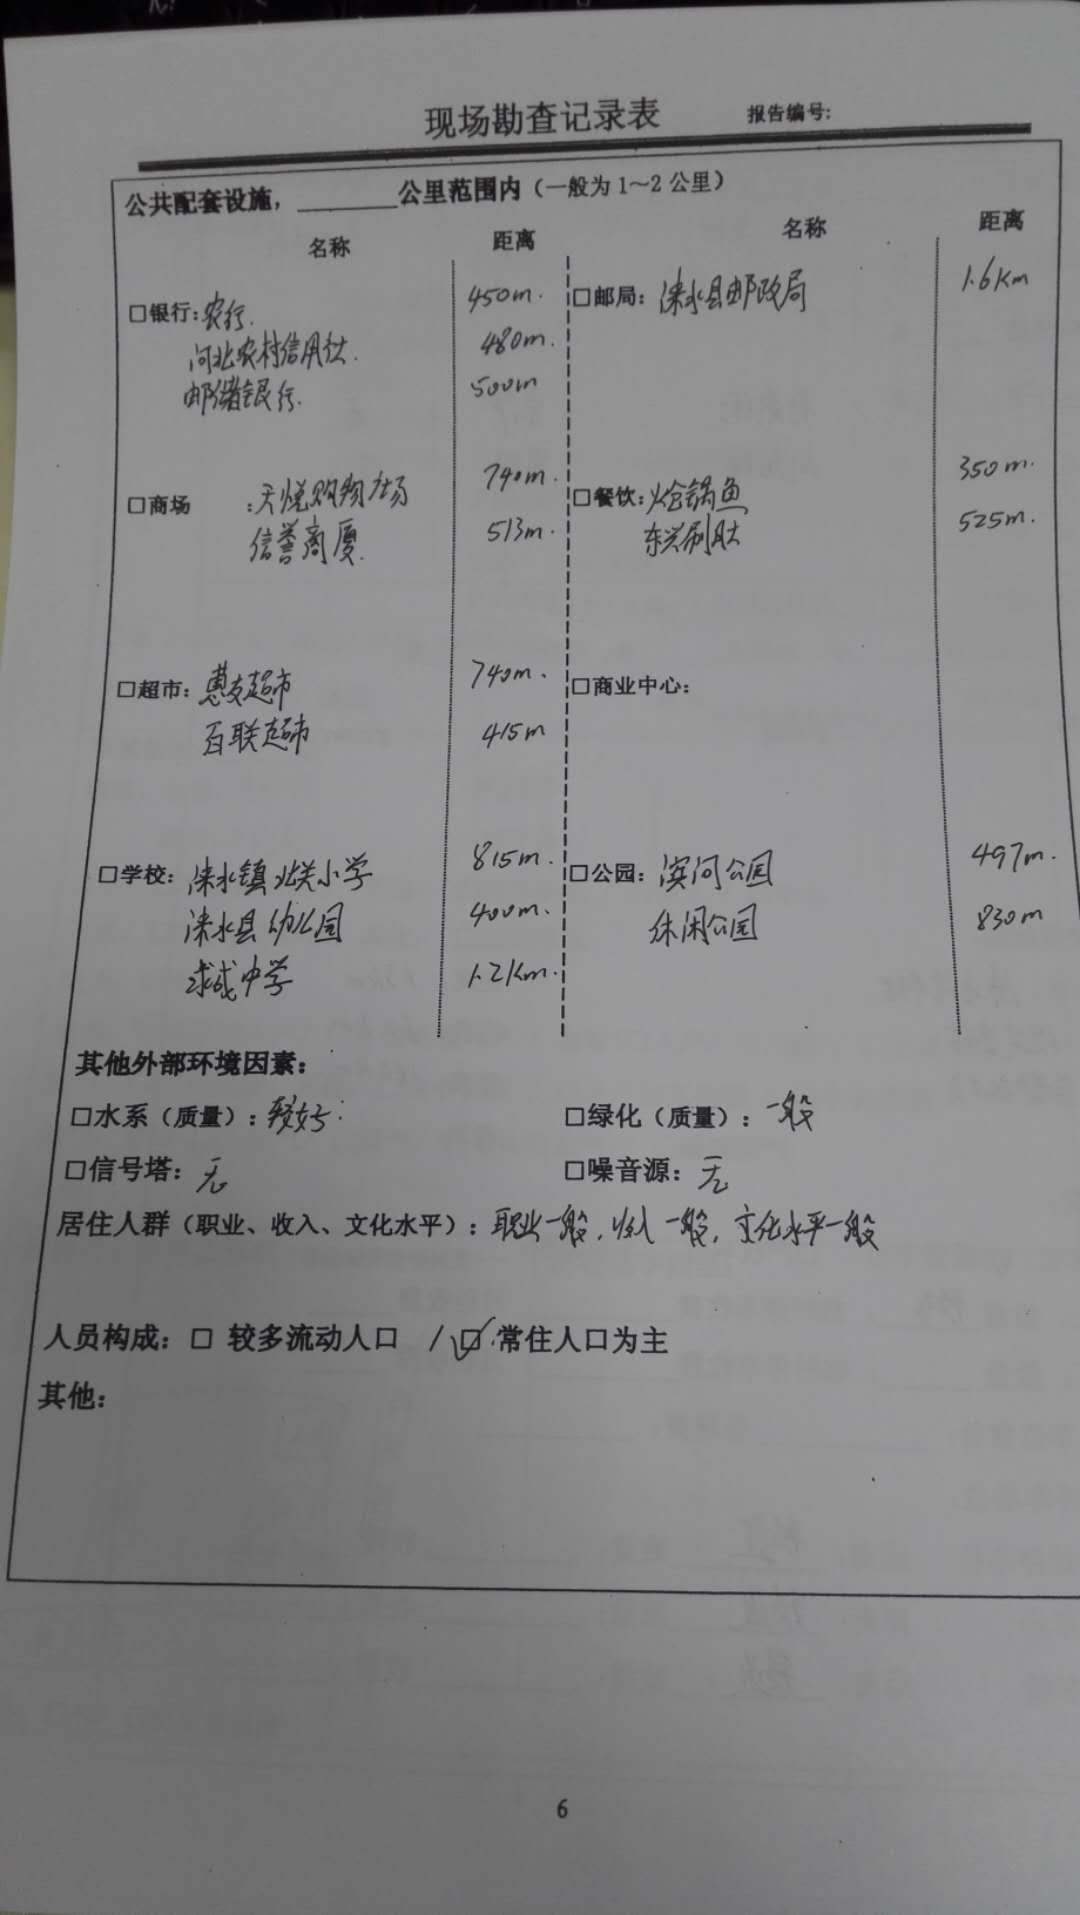 现场勘查记录表 报告编号:
公共配套设施，________公里范围内（一般为 1～2 公里）
名称 距离 名称 距离
□银行：农行. 450m. □邮局：涞水县邮政局 1.6km
河北农村信用社. 480m.
邮储银行. 500m
□商场 ：天悦购物广场 740m. □餐饮：炝锅鱼 350m.
信誉商厦. 513m. 东兴涮肚 525m.
□超市：惠友超市 740m. □商业中心：
百联超市 415m
□学校：涞水镇北关小学 815m. □公园：滨河公园 497m.
涞水县幼儿园 400m. 休闲公园 830m
求成中学 1.2km.
其他外部环境因素：
□水系（质量）：较好. □绿化（质量）：一般
□信号塔：无 □噪音源：无
居住人群（职业、收入、文化水平）：职业一般，收入一般，文化水平一般
人员构成：□ 较多流动人口 /☑常住人口为主
其他：
6